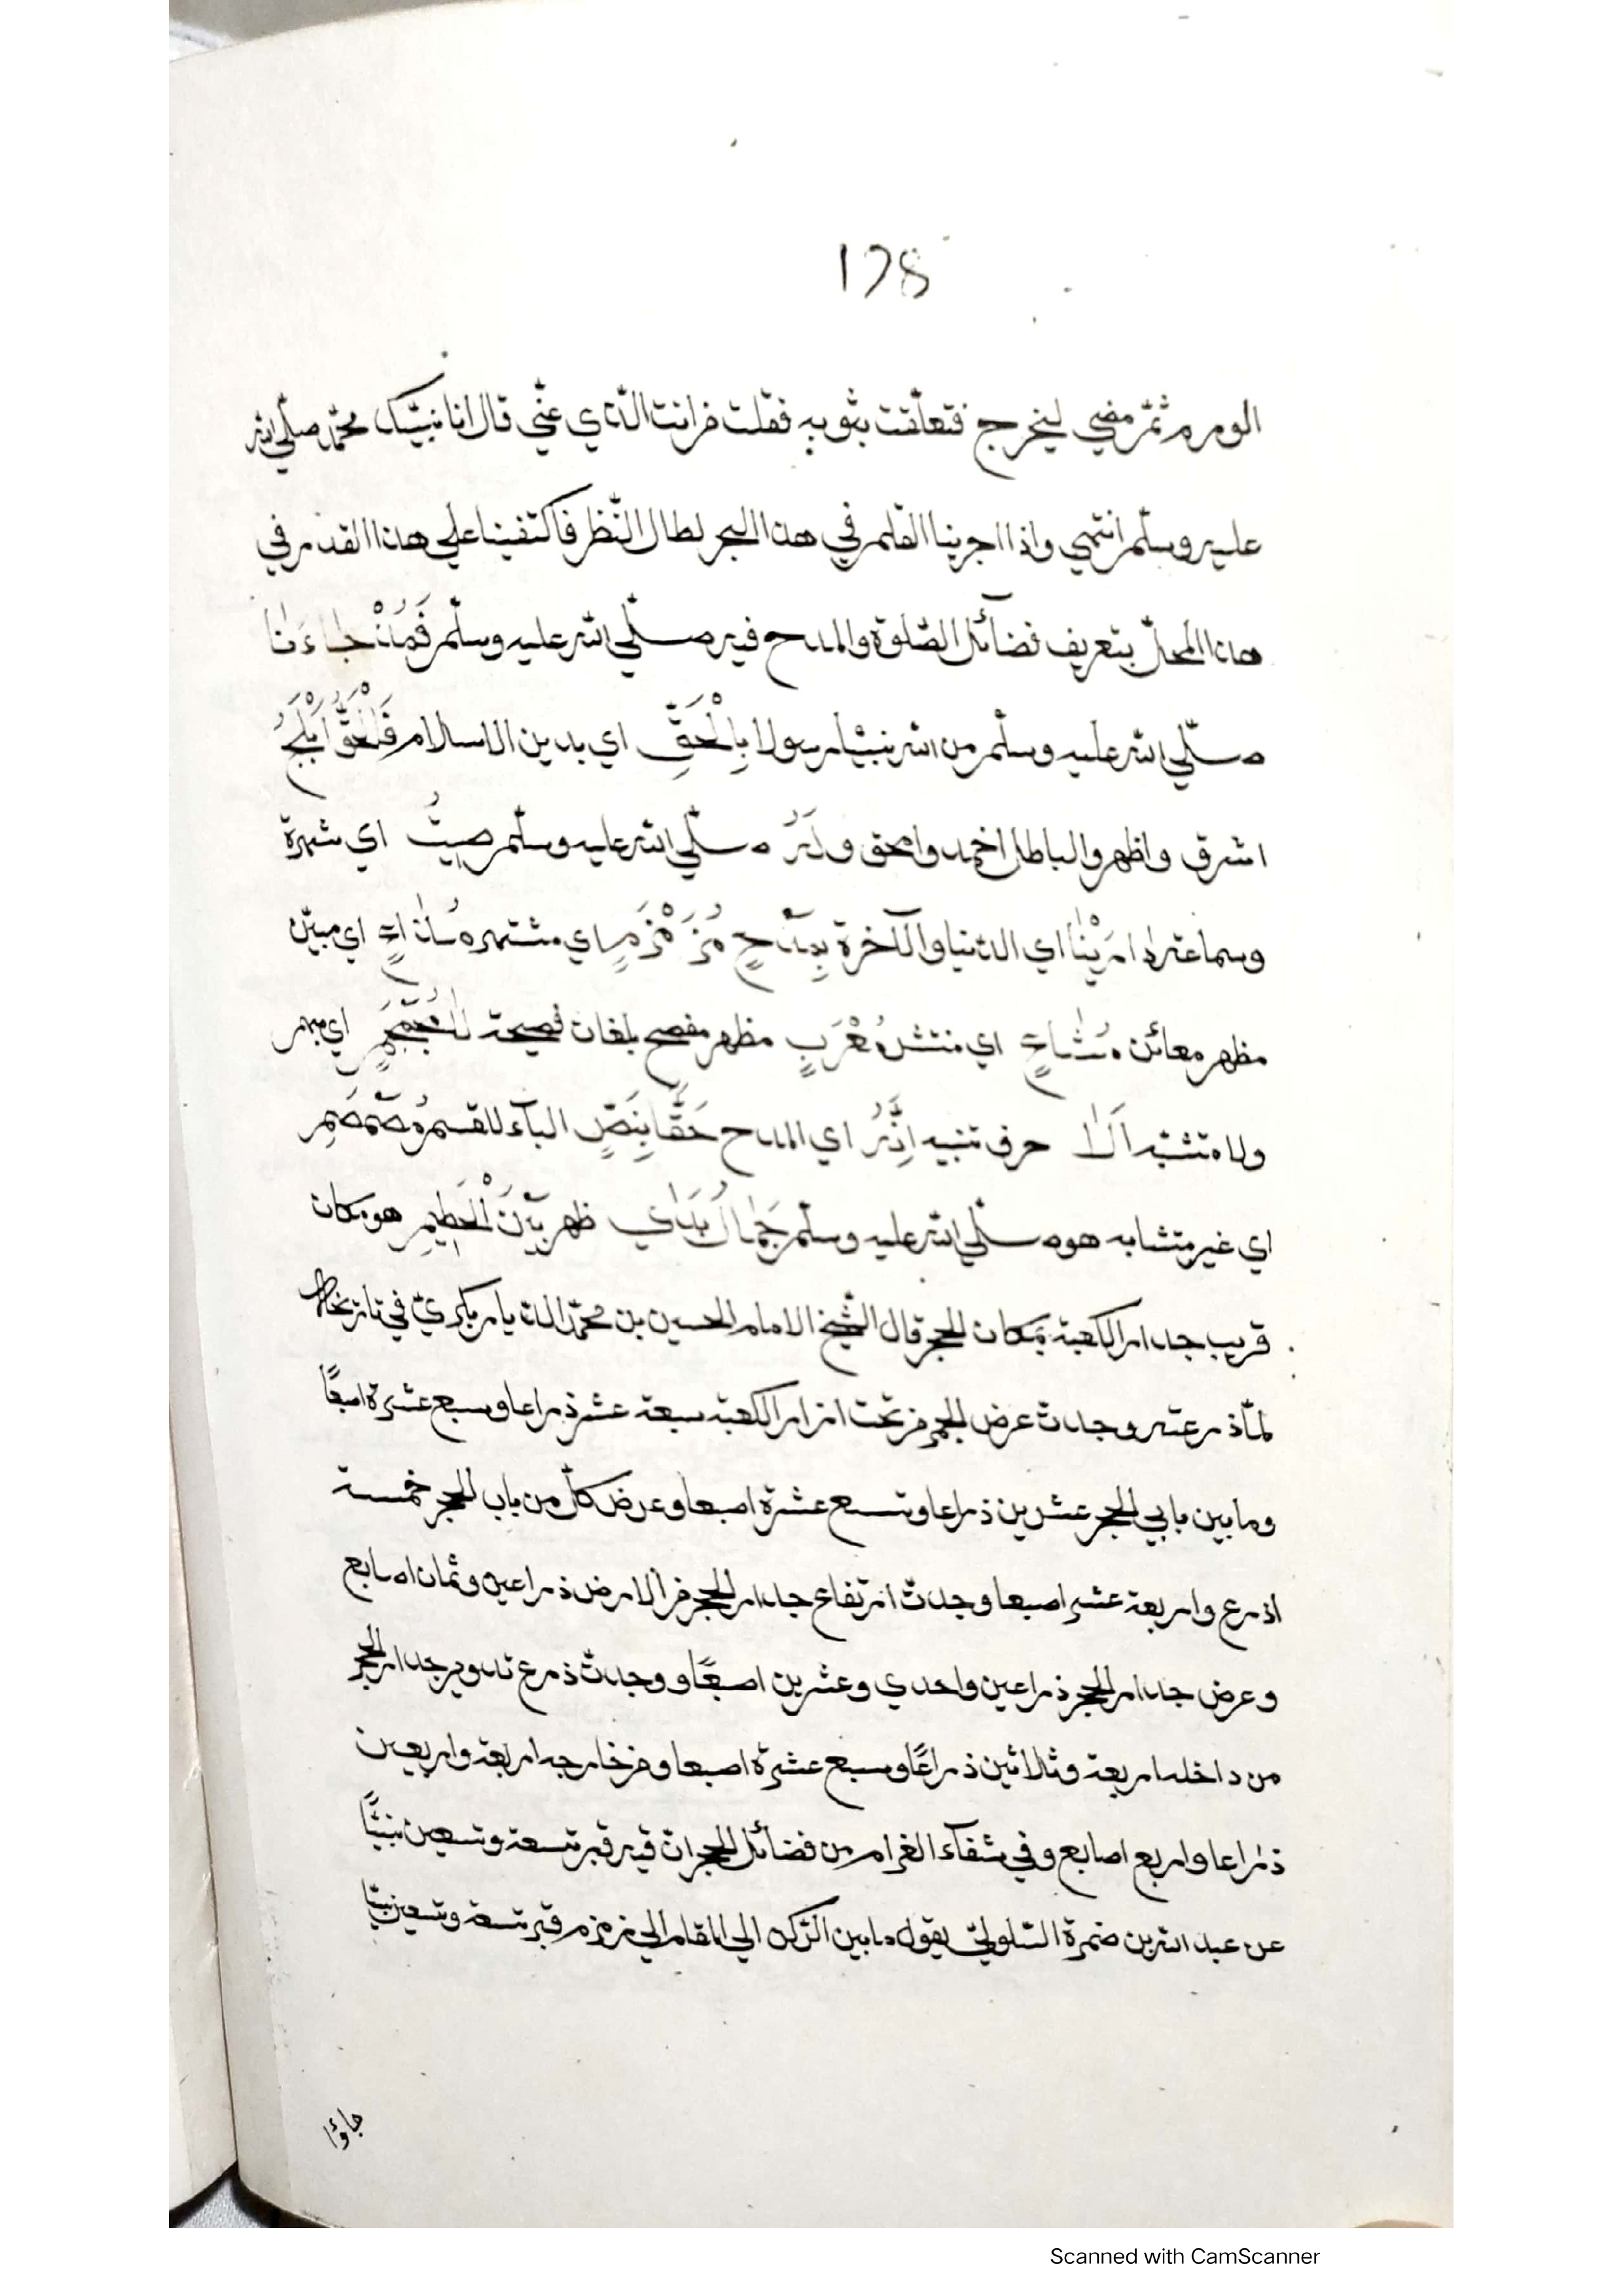 178
الورم ثمّ مضي ليخرج فتعلّقت بثوبه فقلت من انت الّذي عنّي قال انا نبيّك محمّد صلّي الله
عليه وسلّم انتهي واذا اجرينا القلم في هذا البحر لطال النّظر فاكتفينا علي هذا القدر في
هذا المحلّ بتعريف فضآئل الصّلوة والمدح فيه صلّي الله عليه وسلّم فَمُذْ جاءَنا
صلّي الله عليه وسلّم من الله نبيّا رسولا بِالْحَقِّ اي بدين الاسلام فَالْحَقُّ اَبْلَجُ
اشرق واظهر والباطل اخمد وامحق ولَهُ صلّي الله عليه وسلّم صِيتٌ اي شهرة
وسماعته اي الدّنيا والآخرة بِمَدْحٍ مُزَمْزَمٍ اي مشتهر اي مبيّن
مظهر معائن مُشاحٍ اي منتشر مُعْرَبٍ مظهر مفصح بلغات فصيحة اي مبهم
ولا متشبّه اَلا حرف تنبيه اِنَّهُ اي المدح حَقًّا بِنَصٍّ البآء للقسم مُصَمْصَمِ
اي غير متشابه هو صلّي الله عليه وسلّم جَمالٌ بَداي ظهر بَيْنَ الْحَطِيمِ هو مكان
قريب جدار الكعبة بمكان الحجر قال الشّيخ الامام الحسين بن محمّد الديار بكريّ في تاريخه
لمّا ذرعته وجدت عرض الحجر من تحت ازار الكعبة سبعة عشر ذراعا وسبع عشرة اصبعًا
وما بين بابي الحجر عشرين ذراعا وتسع عشرة اصبعا وعرض كلّ من باب الحجر خمسة
اذرع واربعة عشر اصبعا وجدت ارتفاع جدار الحجر من الارض ذراعين وثمان اصابع
وعرض جدار الحجر ذراعين واحدي وعشرين اصبعًا ووجدت ذرع تدوير جدار الحجر
من داخله اربعة وثلاثين ذراعًا وسبع عشرة اصبعا ومن خارجه اربعة واربعين
ذراعا واربع اصابع وفي شفآء الغرام من فضآئل الحجر ان فيه قبر تسعة وتسعين نبيًّا
عن عبد الله بن ضمرة السّلوليّ يقول ما بين الرّكن الي المقام الي زمزم قبر تسعة وتسعين نبيّا
جاؤا
Scanned with CamScanner